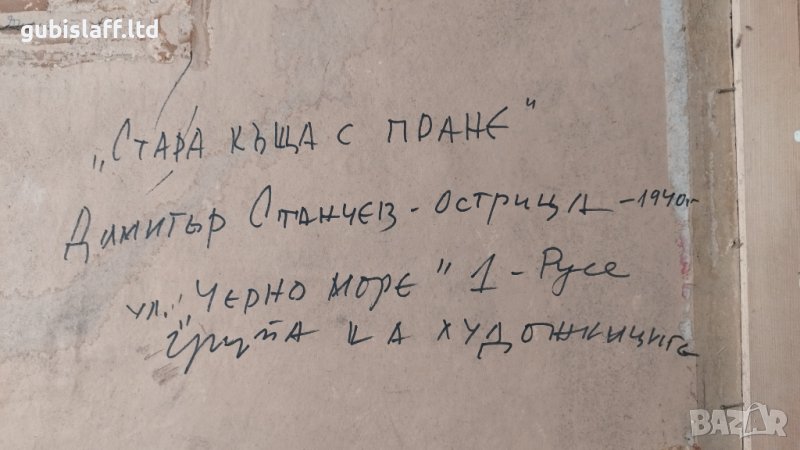 gubislaff.ltd
„Стара къща с пране"
Димитър Станчев - Острица - 1940г.
ул. „Черно море" 1 - Русе
Група на художниците
BAZAR